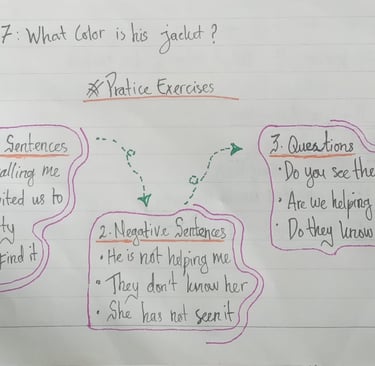 7: What Color is his jacket?
* Pratice Exercises
Sentences
alling me
ited us to
ty
Find it
2. Negative Sentences
• He is not helping me
• They don't know her
• She has not seen it
3. Questions
• Do you see the
• Are we helping
• Do they know